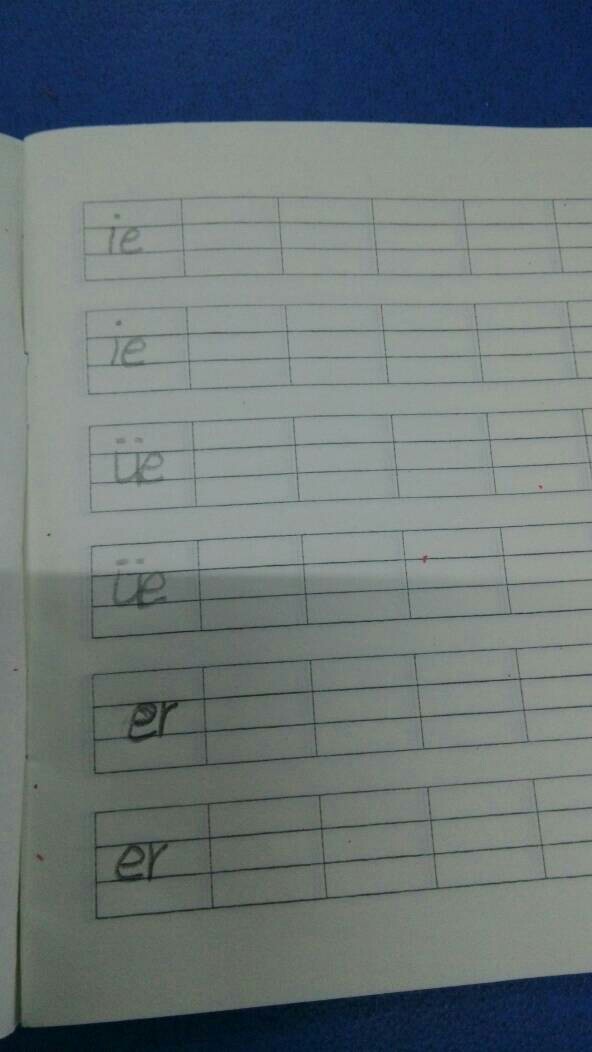 ie
ie
üe
üe
er
er